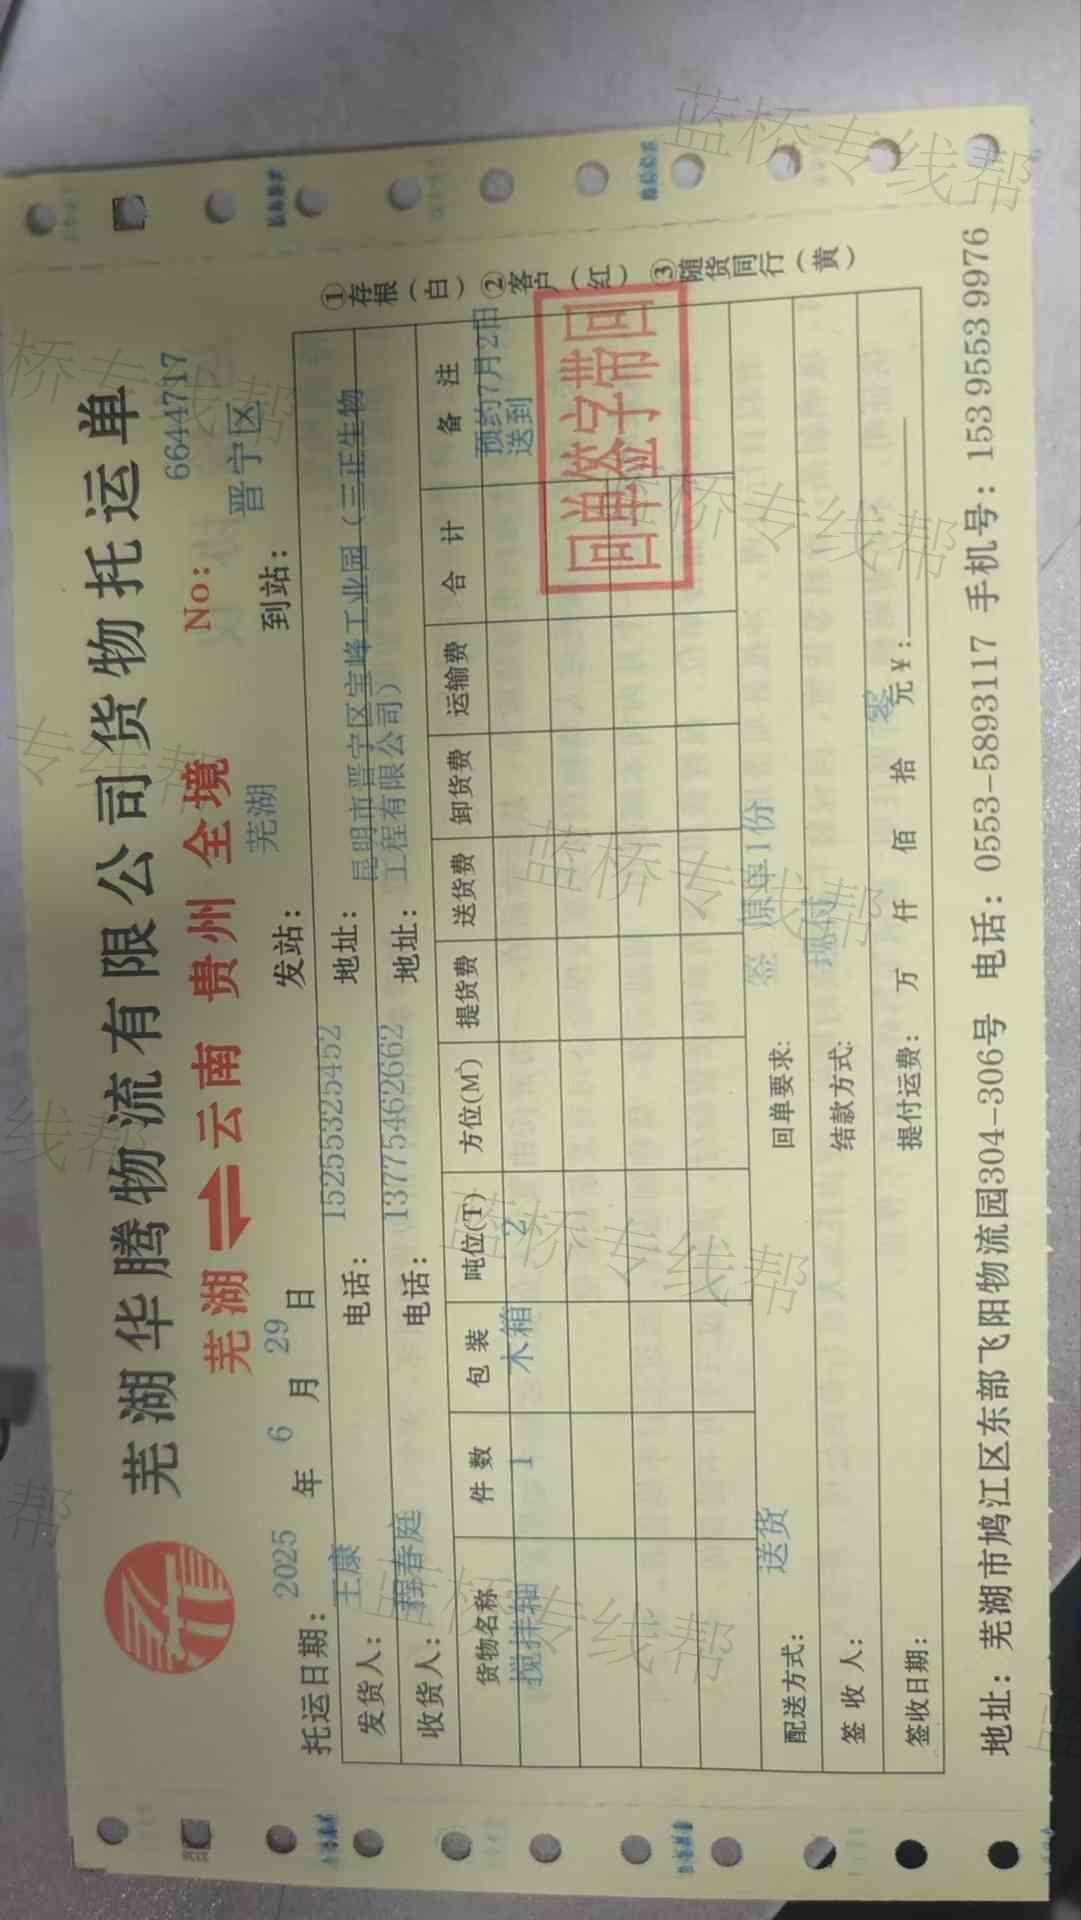 芜湖华腾物流有限公司货物托运单
芜湖⇌云南 贵州 全境 No: 6644717
托运日期: 2025 年 6 月 29 日 发站: 芜湖 到站: 晋宁区
发货人: 王康 电话: 15255325452 地址:
收货人: 程春庭 电话: 13775462662 地址: 昆明市晋宁区宝峰工业园(三正生物
工程有限公司)
货物名称 件数 包装 吨位(T) 方位(M) 提货费 送货费 卸货费 运输费 合计 备注
搅拌轴 1 木箱 2 预约7月2日
送到
回单签字带回
配送方式: 送货 回单要求: 签 原单1份
签收人: 结款方式: 现付
签收日期: 提付运费: 万 仟 佰 拾 零 元¥:
①存根(白) ②客户(红) ③随货同行(黄)
地址: 芜湖市鸠江区东部飞阳物流园304-306号 电话: 0553-5893117 手机号: 153 9553 9976
蓝桥专线帮
桥专线帮
蓝桥专线帮
专线帮
蓝桥专线帮
线帮
蓝桥专线帮
帮
蓝桥专线帮
蓝